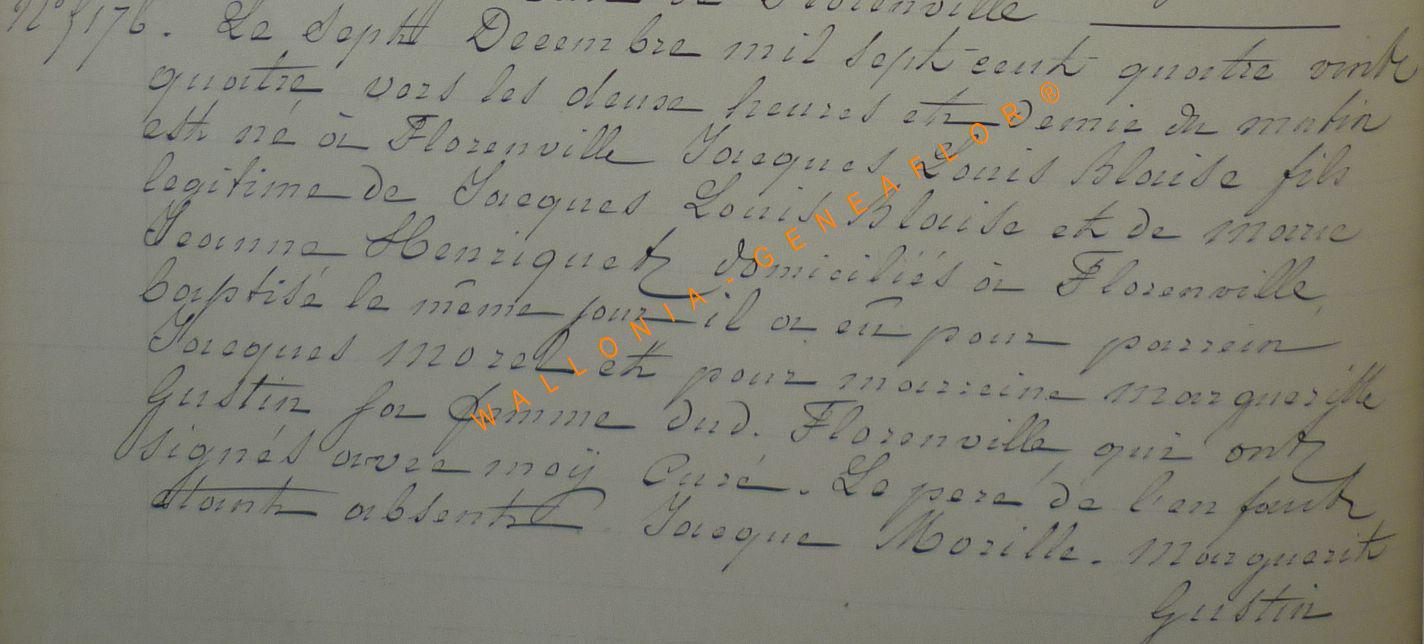 de Florenville
N° 176. Le Sept Decembre mil sept cent quatre vint
quatre vers les deux heures et Demie du matin
est né à Florenville Jacques Louis Blaise fils
legitime de Jacques Louis Blaise et de marie
Jeanne Henriquet domiciliés à Florenville,
baptisé le même jour il a eû pour parrein
Jacques morel et pour marreine margueritte
Gustin sa femme dud. Florenville qui ont
signés avec moÿ Curé. Le pere de l'enfant
etant absent Jacque Morille. Marguerit
Gustin
WALLONIA - GENEAFLOR®